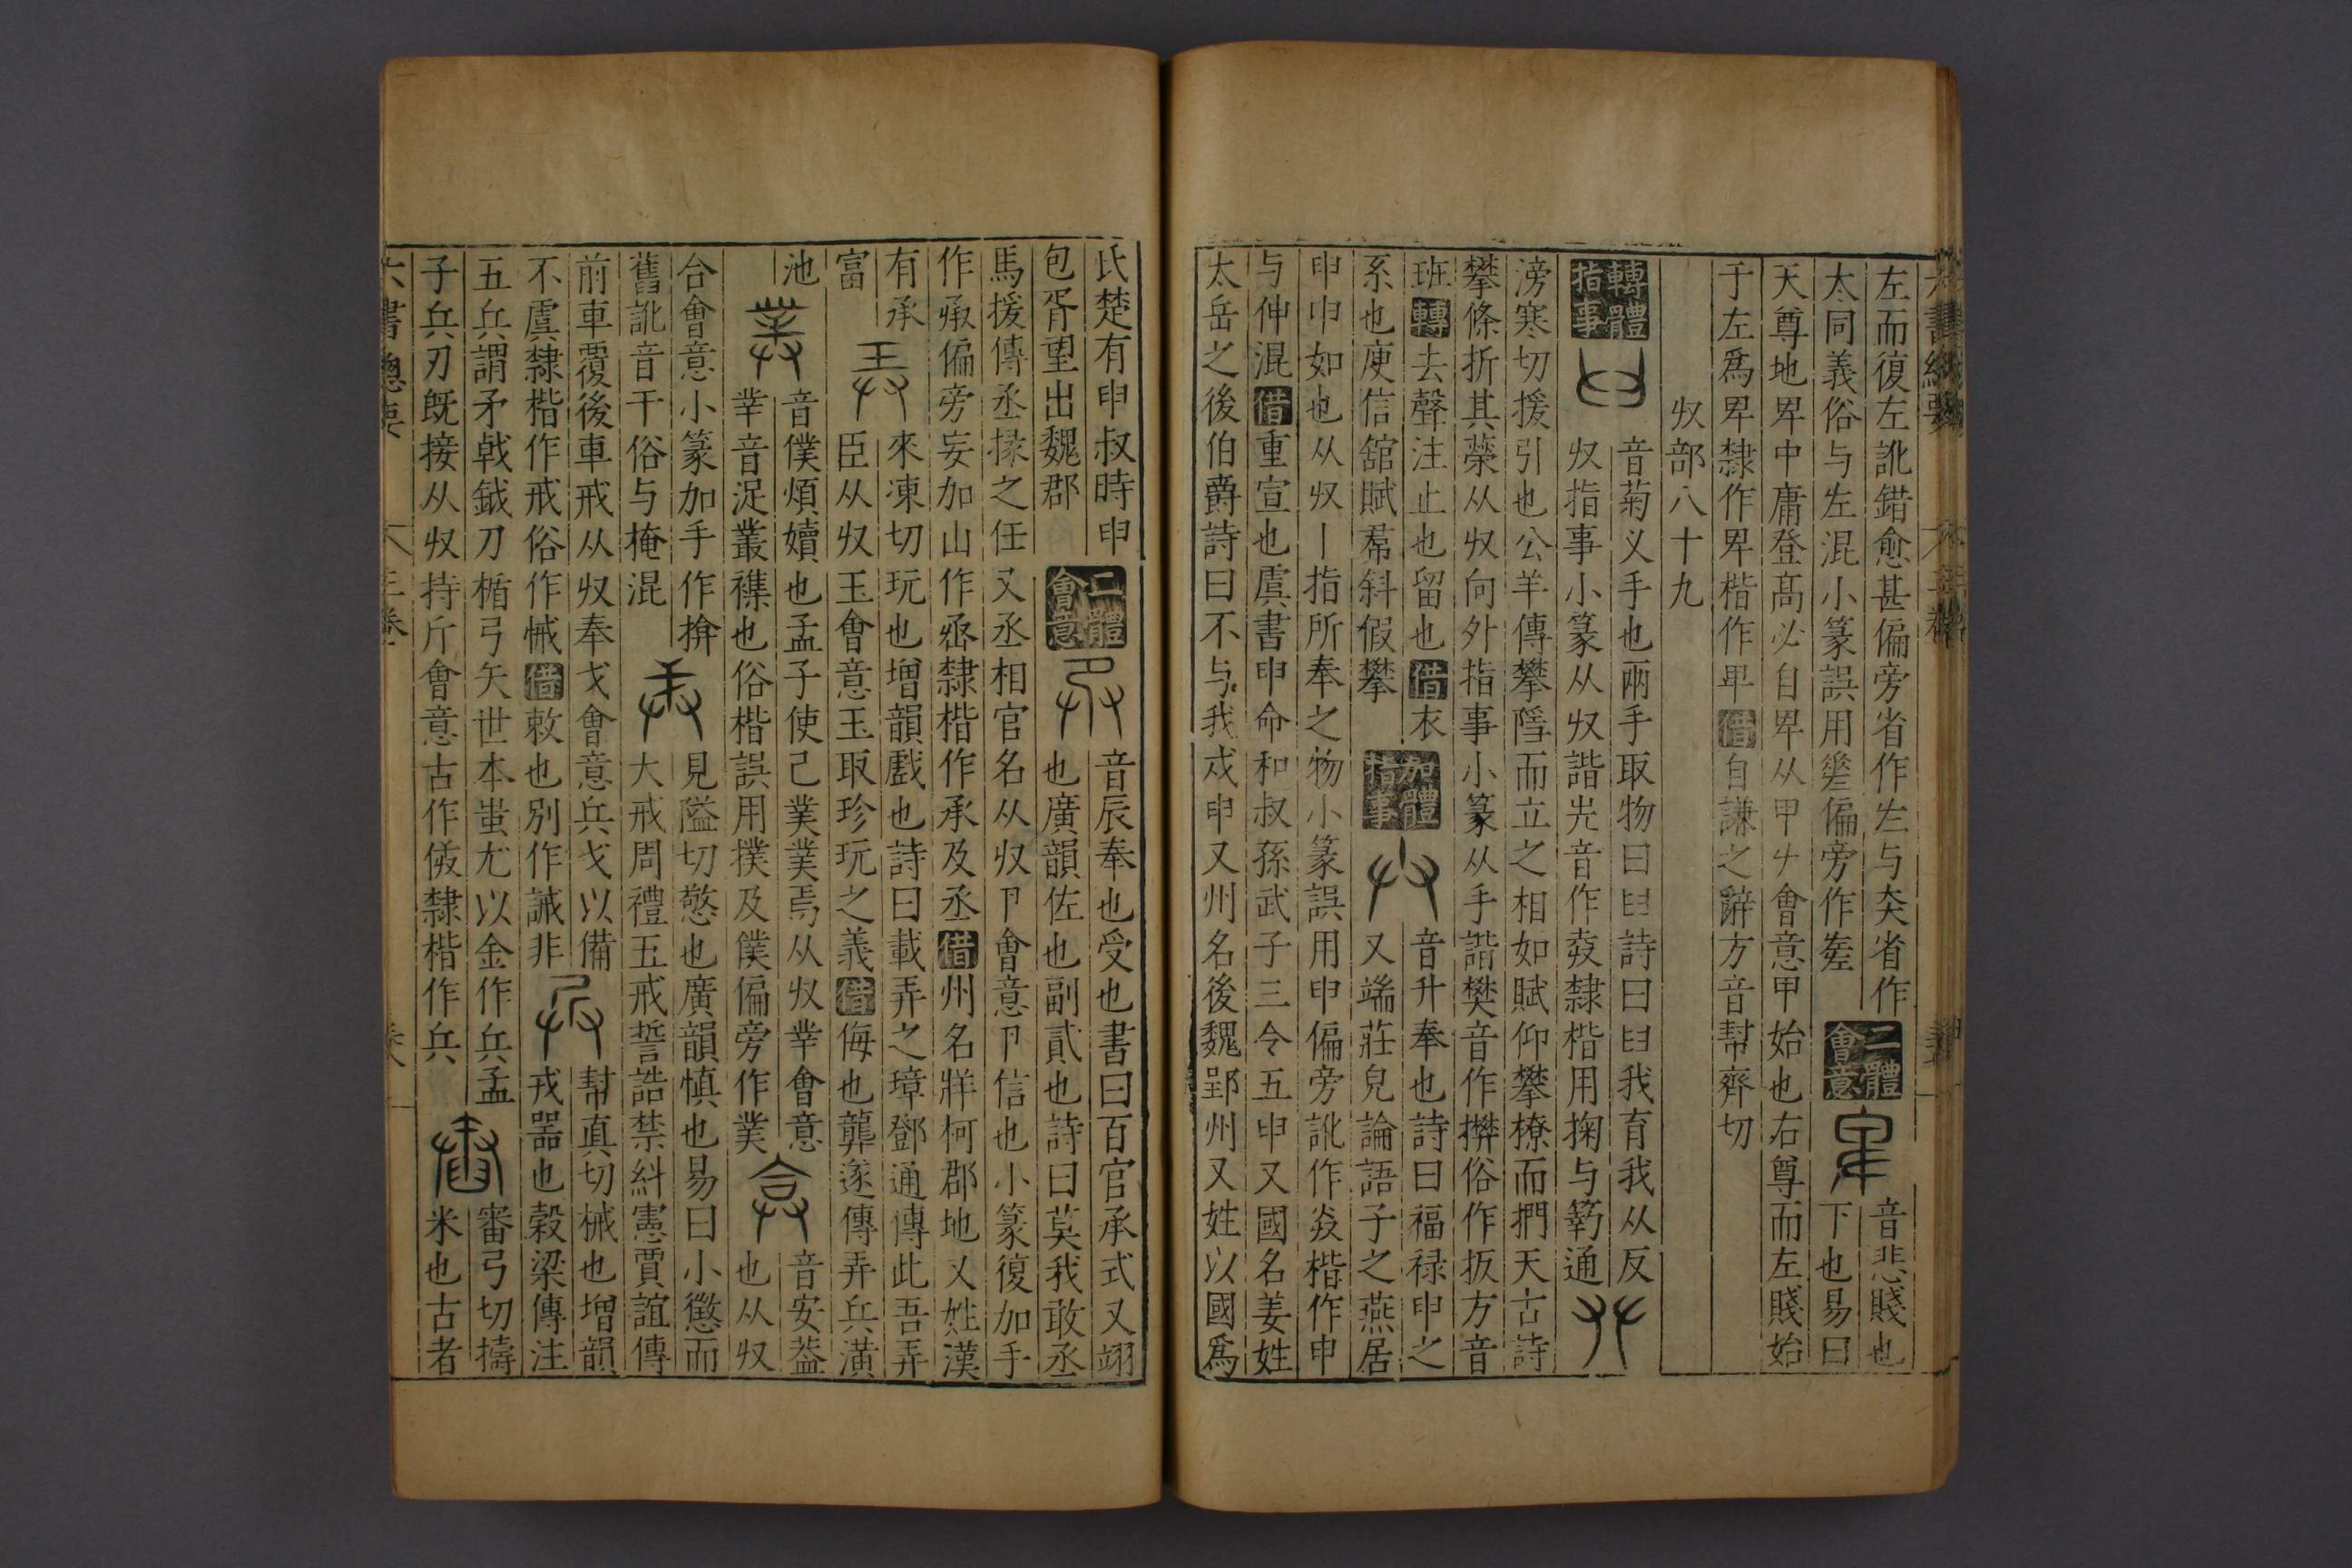 左而復左訛錯愈甚偏旁省作𠂇与夶省作
太同義俗与左混小篆誤用㢀偏旁作差
二體會意
音悲賤也
下也易曰
天尊地卑中庸登髙必自卑从甲𠂇會意甲始也右尊而左賤始
于左爲卑隸作卑楷作卑借自謙之辭方音幫齊切
収部八十九
轉體指事
音菊义手也兩手取物曰𦥑詩曰𦥑我育我从反
収指事小篆从収諧兂音作𢍏隸楷用掬与䈮通
滂寒切援引也公羊傳攀隥而立之相如賦仰攀橑而捫天古詩
攀條折其榮从収向外指事小篆从手諧樊音作攀俗作扳方音
班轉去聲注止也留也借衣
系也庾信舘賦羣斜假攀
加體指事
音升奉也詩曰福禄申之
又端莊皃論語子之燕居
申申如也从収丨指所奉之物小篆誤用申偏旁訛作𡗗楷作申
与伸混借重宣也虞書申命和叔孫武子三令五申又國名姜姓
太岳之後伯爵詩曰不与我戍申又州名後魏郢州又姓以國爲
氏楚有申叔時申
包胥望出魏郡
二體會意
音辰奉也受也書曰百官承式又翊
也廣韻佐也副貳也詩曰莫我敢丞
馬援傳丞掾之任又丞相官名从収卩會意卩信也小篆復加手
作承偏旁妄加山作丞隸楷作承及丞借州名牂柯郡地又姓漢
有承
富
來凍切玩也增韻戲也詩曰載弄之璋鄧通傳此吾弄
臣从収玉會意玉取珍玩之義借侮也龔遂傳弄兵潢
池
音僕煩瀆也孟子使己菐菐焉从収丵會意
丵音浞叢襍也俗楷誤用撲及僕偏旁作菐
音安葢
也从収
合會意小篆加手作揜
舊訛音干俗与掩混
見隘切憼也廣韻慎也易曰小懲而
大戒周禮五戒誓誥禁糾憲賈誼傳
前車覆後車戒从収奉戈會意兵戈以備
不虞隸楷作戒俗作悈借敕也別作誡非
幫真切械也增韻
戎噐也穀梁傳注
五兵謂矛戟鉞刀楯弓矢世本蚩尤以金作兵孟
子兵刃既接从収持斤會意古作㑁隸楷作兵
審弓切擣
米也古者
六書總要